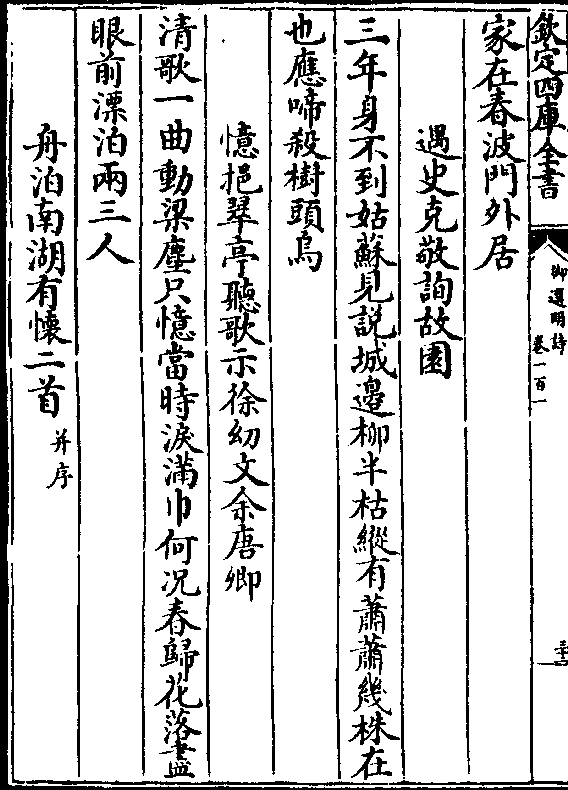 欽定四庫全書
御選明詩
卷一百一
家在春波門外居
遇史克敬詢故園
三年身不到姑蘇見説城邉柳半枯縱有蕭蕭幾株在
也應啼殺樹頭烏
憶挹翠亭聽歌示徐幼文余唐卿
清歌一曲動梁塵只憶當時淚滿巾何况春歸花落盡
眼前漂泊兩三人
舟泊南湖有懷二首并序